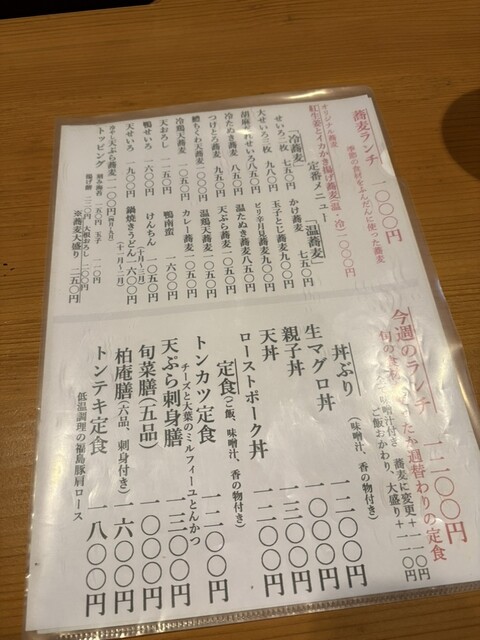 蕎麦ランチ 一〇〇〇円
季節の食材をふんだんに使った蕎麦
オリジナル蕎麦
紅生姜とイカかき揚げ蕎麦(温・冷)一〇〇〇円
定番メニュー
「冷蕎麦」
せいろ二枚 七五〇円
大せいろ三枚 九八〇円
胡麻だれせいろ八五〇円
冷たぬき蕎麦 八五〇円
つけとろ蕎麦 九五〇円
鱧ちくわ天蕎麦一〇〇〇円
冷鶏天蕎麦一〇五〇円
天おろし 一一五〇円
鴨せいろ 一六〇〇円
天せいろ 一九〇〇円
冷やし天ぷら蕎麦一一〇〇円
「温蕎麦」
かけ蕎麦 七五〇円
玉子とじ蕎麦九〇〇円
ピリ辛月見蕎麦九〇〇円
温たぬき蕎麦八五〇円
天ぷら蕎麦一〇五〇円
温鶏天蕎麦一〇五〇円
カレー蕎麦一〇五〇円
鴨南蛮 一六〇〇円
けんちん 一〇五〇円
鍋焼きうどん一六〇〇円
トッピング
※蕎麦大盛り 二五〇円
今週のランチ 一二〇〇円
週替わりの定食
味噌汁付き 蕎麦に変更+一一〇円
ご飯おかわり、大盛り+一一〇円
丼ぶり (味噌汁、香の物付き)
生マグロ丼 一二〇〇円
親子丼 一一〇〇円
天丼 一三〇〇円
ローストポーク丼 一二〇〇円
定食(ご飯、味噌汁、香の物付き)
トンカツ定食 一二〇〇円
チーズと大葉のミルフィーユとんかつ
天ぷら刺身膳 一三〇〇円
旬菜膳(五品) 一〇〇〇円
柏庵膳(六品、刺身付き) 一六〇〇円
トンテキ定食 一八〇〇円
低温調理の福島豚肩ロース